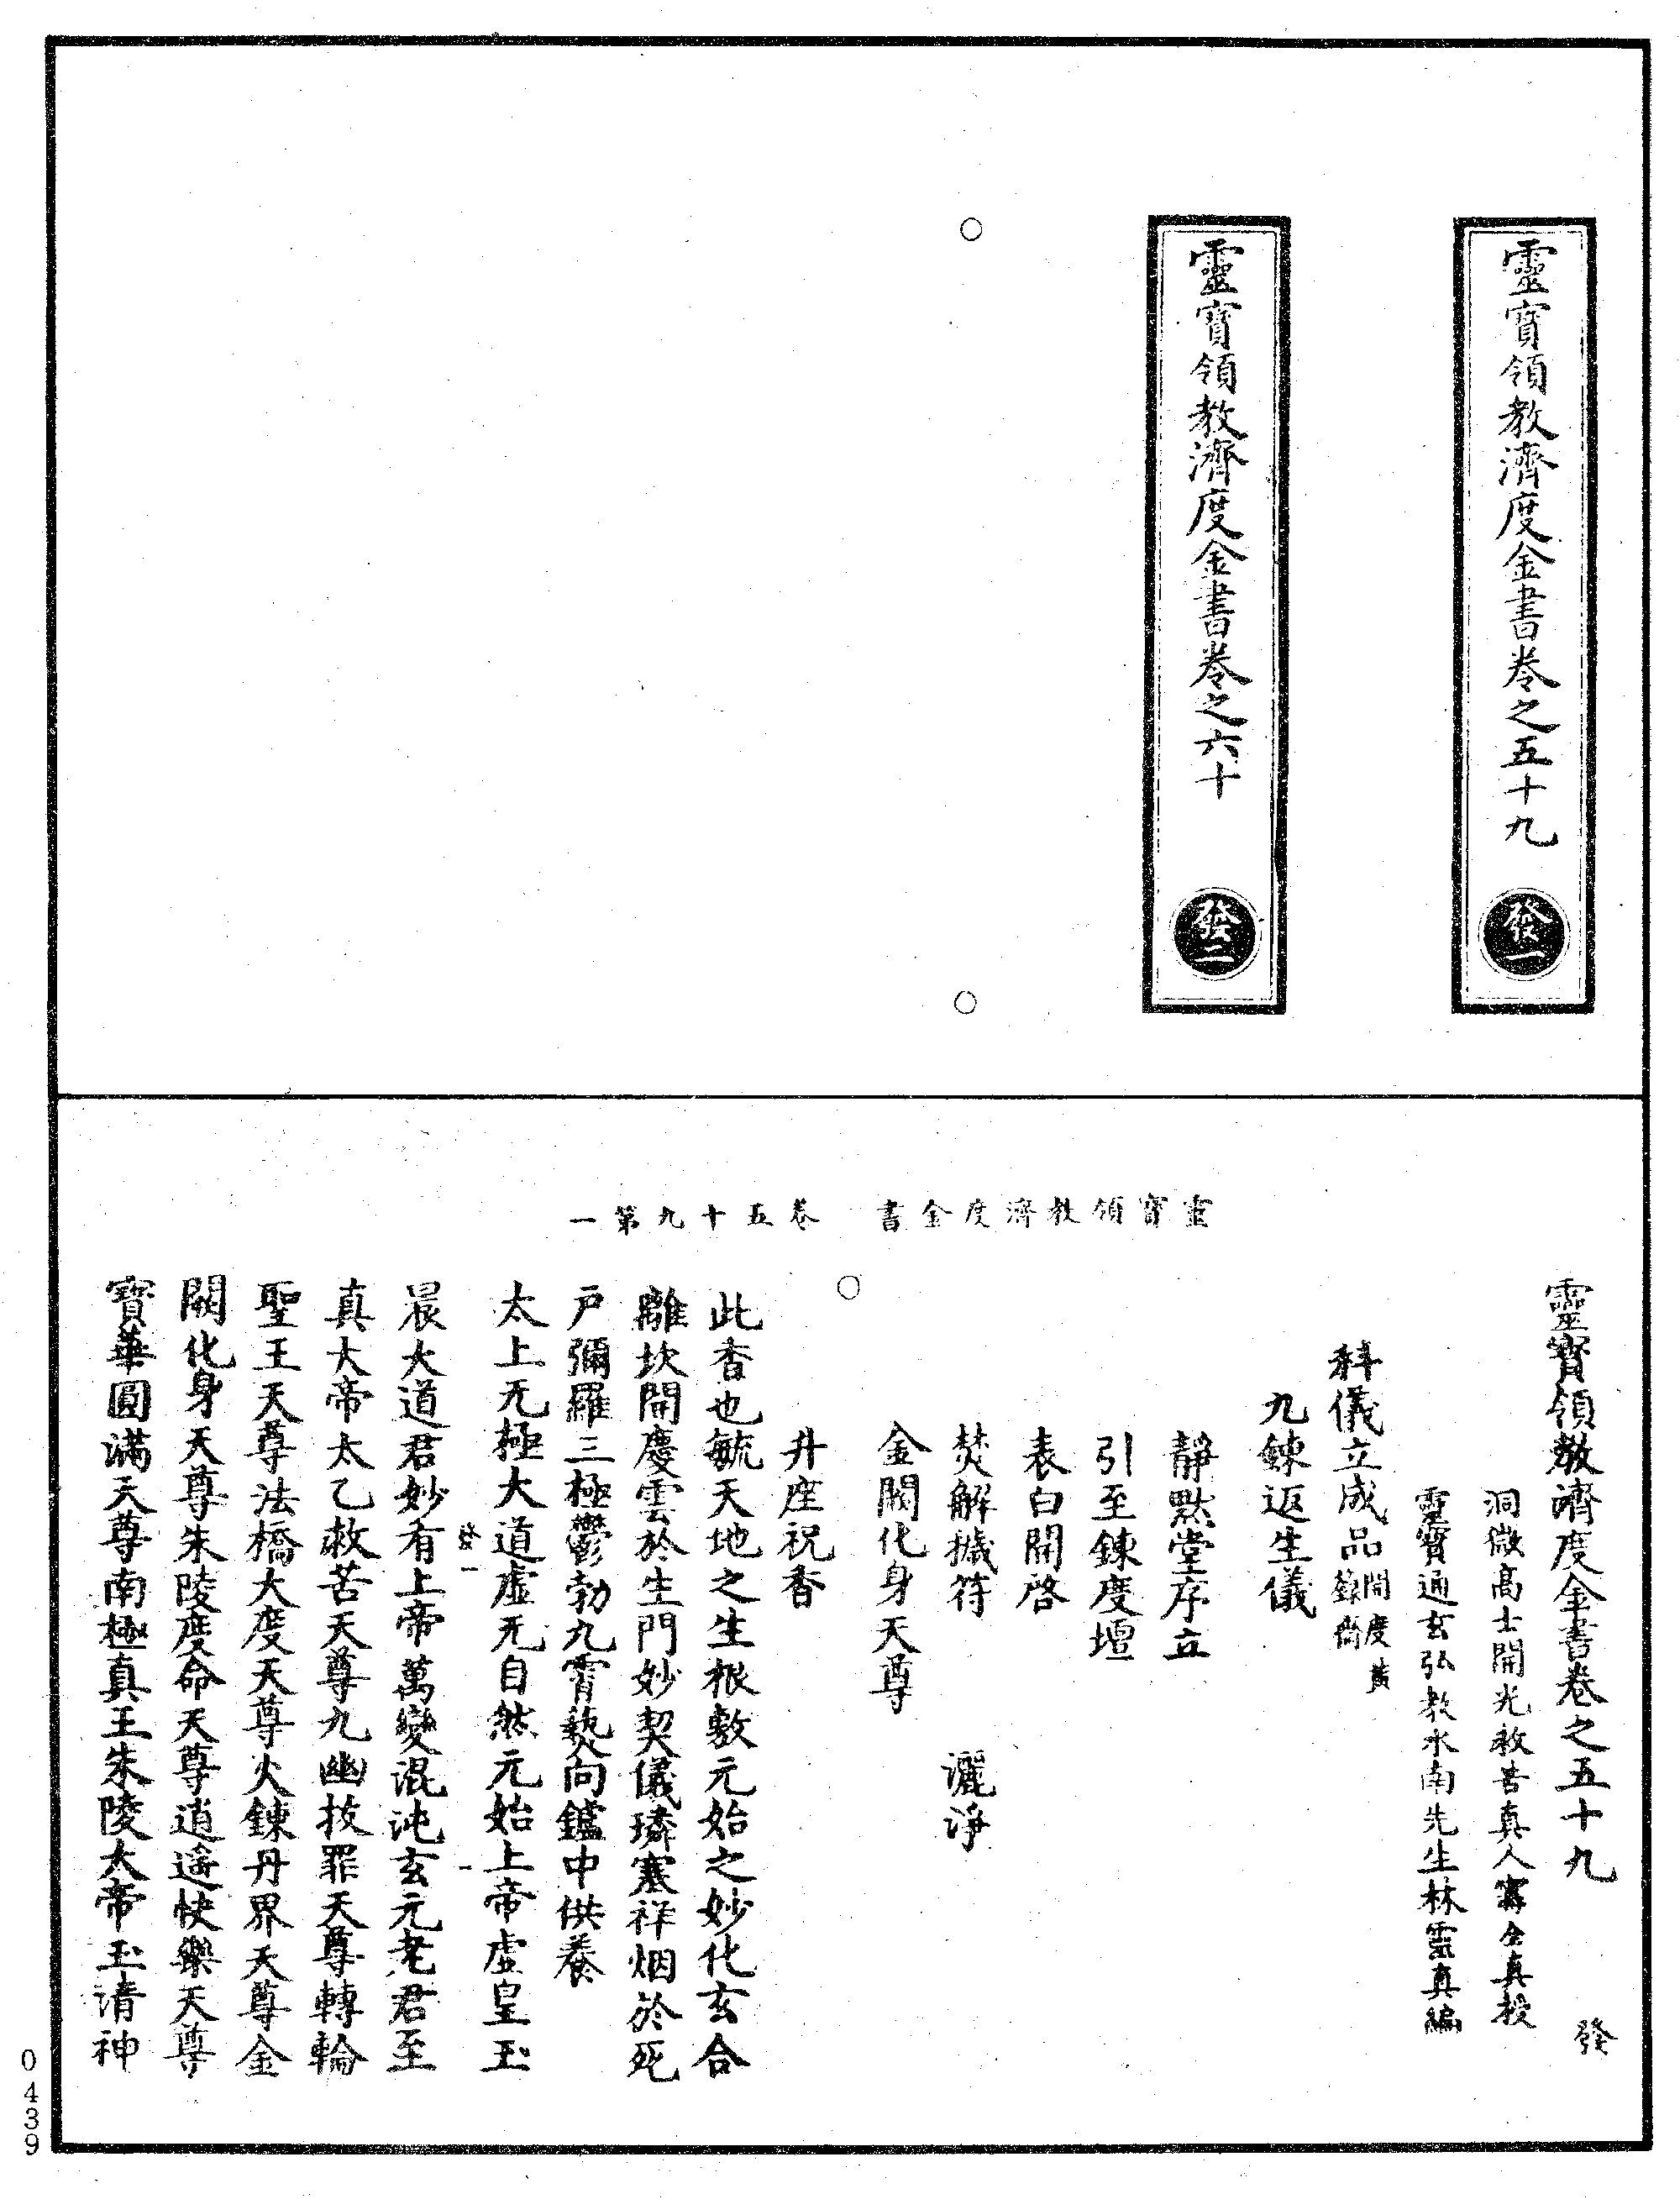 靈寶領教濟度金書卷之五十九
發一
靈寶領教濟度金書卷之六十
發二
靈寶領教濟度金書 卷五十九第一
靈寶領教濟度金書卷之五十九 發
洞微高士開光救苦真人寗全真授
靈寶通玄弘教水南先生林靈真編
科儀立成品開度黃籙齋
九鍊返生儀
靜默堂序立
引至鍊度壇
表白開啓
焚解穢符 灑淨
金闕化身天尊
升座祝香
此香也毓天地之生根敷元始之妙化玄合
離坎開慶雲於生門妙契儀璘塞祥烟於死
戶彌羅三極鬱勃九霄爇向鑪中供養
太上无極大道虛无自然元始上帝虛皇玉
發一 一
晨大道君妙有上帝萬變混沌玄元老君至
真大帝太乙救苦天尊九幽拔罪天尊轉輪
聖王天尊法橋大度天尊火鍊丹界天尊金
闕化身天尊朱陵度命天尊逍遙快樂天尊
寶華圓滿天尊南極真王朱陵大帝玉清神
0439